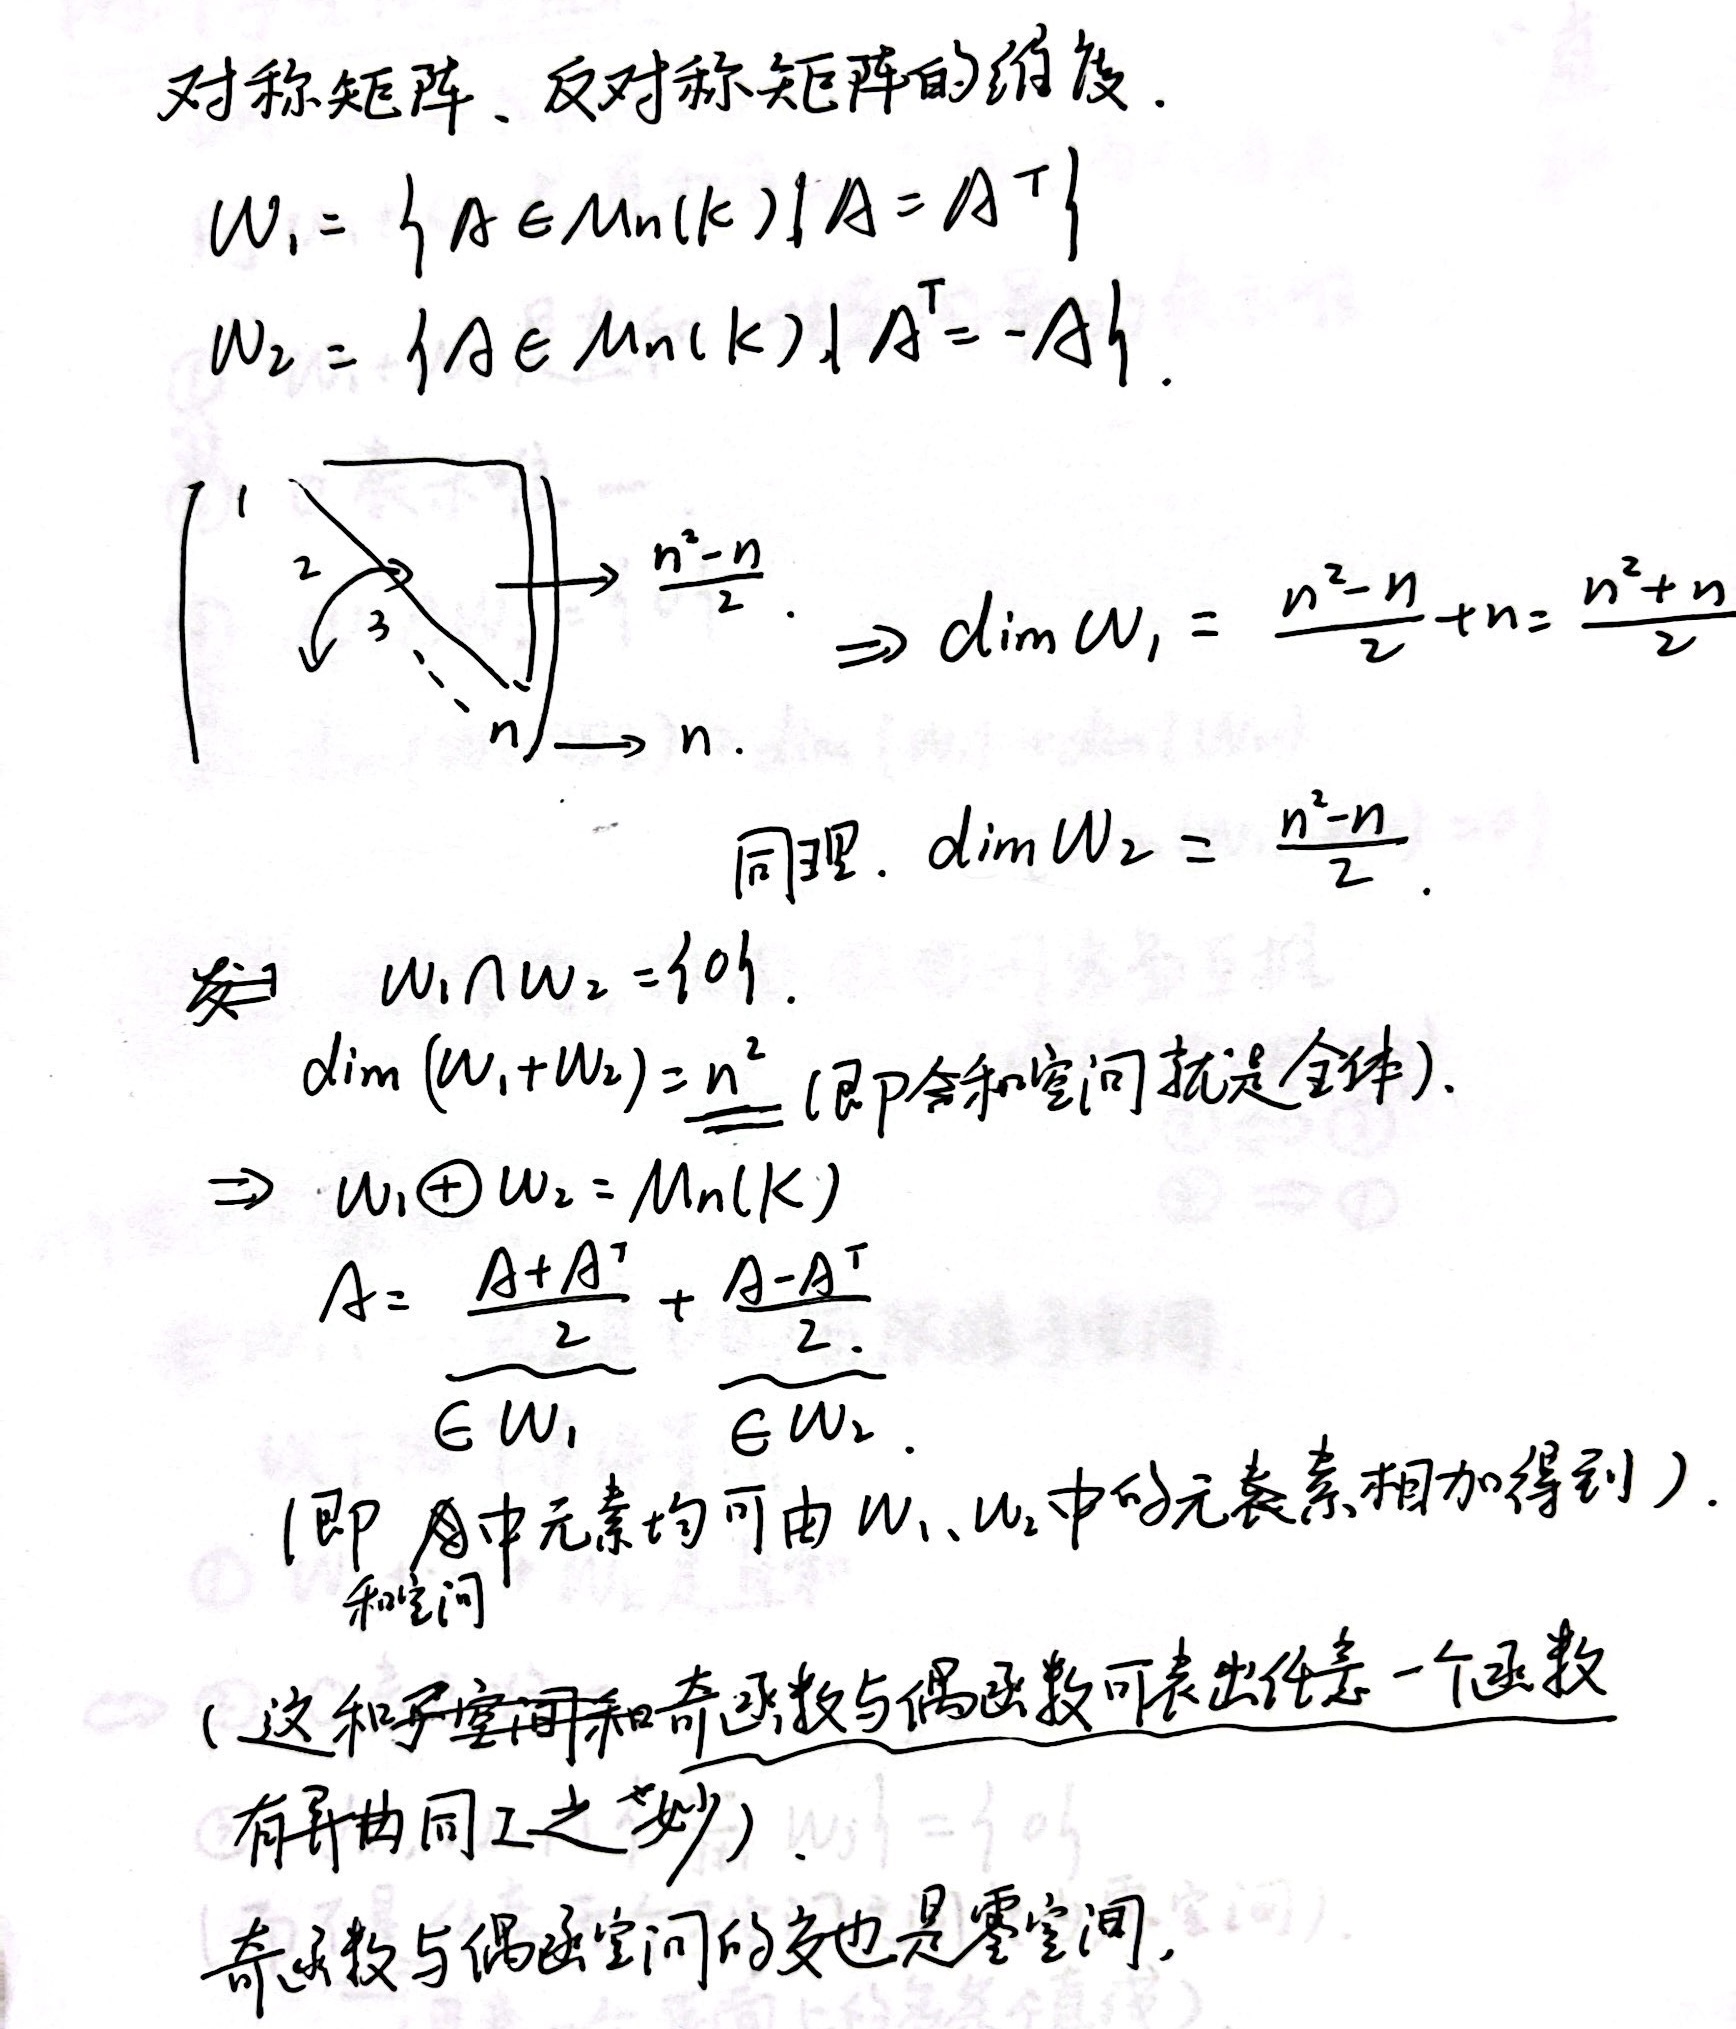 对称矩阵、反对称矩阵的维度.
W₁ = { A ∈ Mn(K) | A = Aᵀ }
W₂ = { A ∈ Mn(K) | Aᵀ = -A }.
1
2
3
n
→ (n²-n)/2.
→ n.
⇒ dim W₁ = (n²-n)/2 + n = (n²+n)/2
同理. dim W₂ = (n²-n)/2.
W₁∩W₂ = {0}.
dim (W₁+W₂) = n² (即和空间就是全体).
⇒ W₁⊕W₂ = Mn(K)
A = (A+Aᵀ)/2 + (A-Aᵀ)/2.
∈ W₁ ∈ W₂.
(即 中元素均可由 W₁、W₂中的元素相加得到).
和空间
(这和奇函数与偶函数可表出任意一个函数
有异曲同工之妙).
奇函数与偶函空间的交也是零空间.